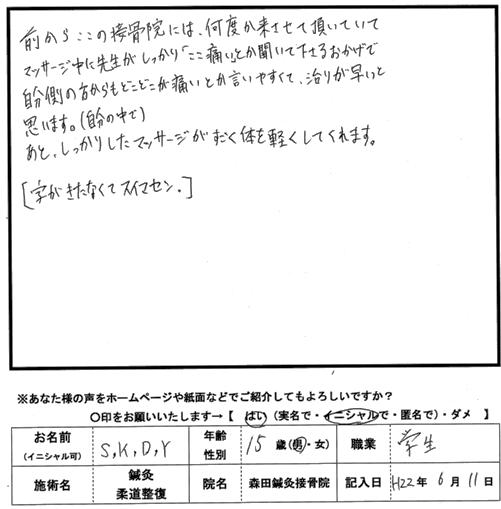 前からここの接骨院には、何度か来させて頂いていて
マッサージ中に先生がしっかり「ここ痛い」とか聞いて下さるおかげで
自分側の方からもどこどこが痛いとか言いやすくて、治りが早いと
思います。(自分の中で)
あと、しっかりしたマッサージがすごく体を軽くしてくれます。
[字がきたなくてスイマセン.]
※あなた様の声をホームページや紙面などでご紹介してもよろしいですか?
〇印をお願いいたします→【 はい (実名で・イニシャルで・匿名で)・ダメ 】
お名前 (イニシャル可) S,K,D,Y 年齢 性別 15 歳(男・女) 職業 学生
施術名 鍼灸 柔道整復 院名 森田鍼灸接骨院 記入日 H22年 6月 11日